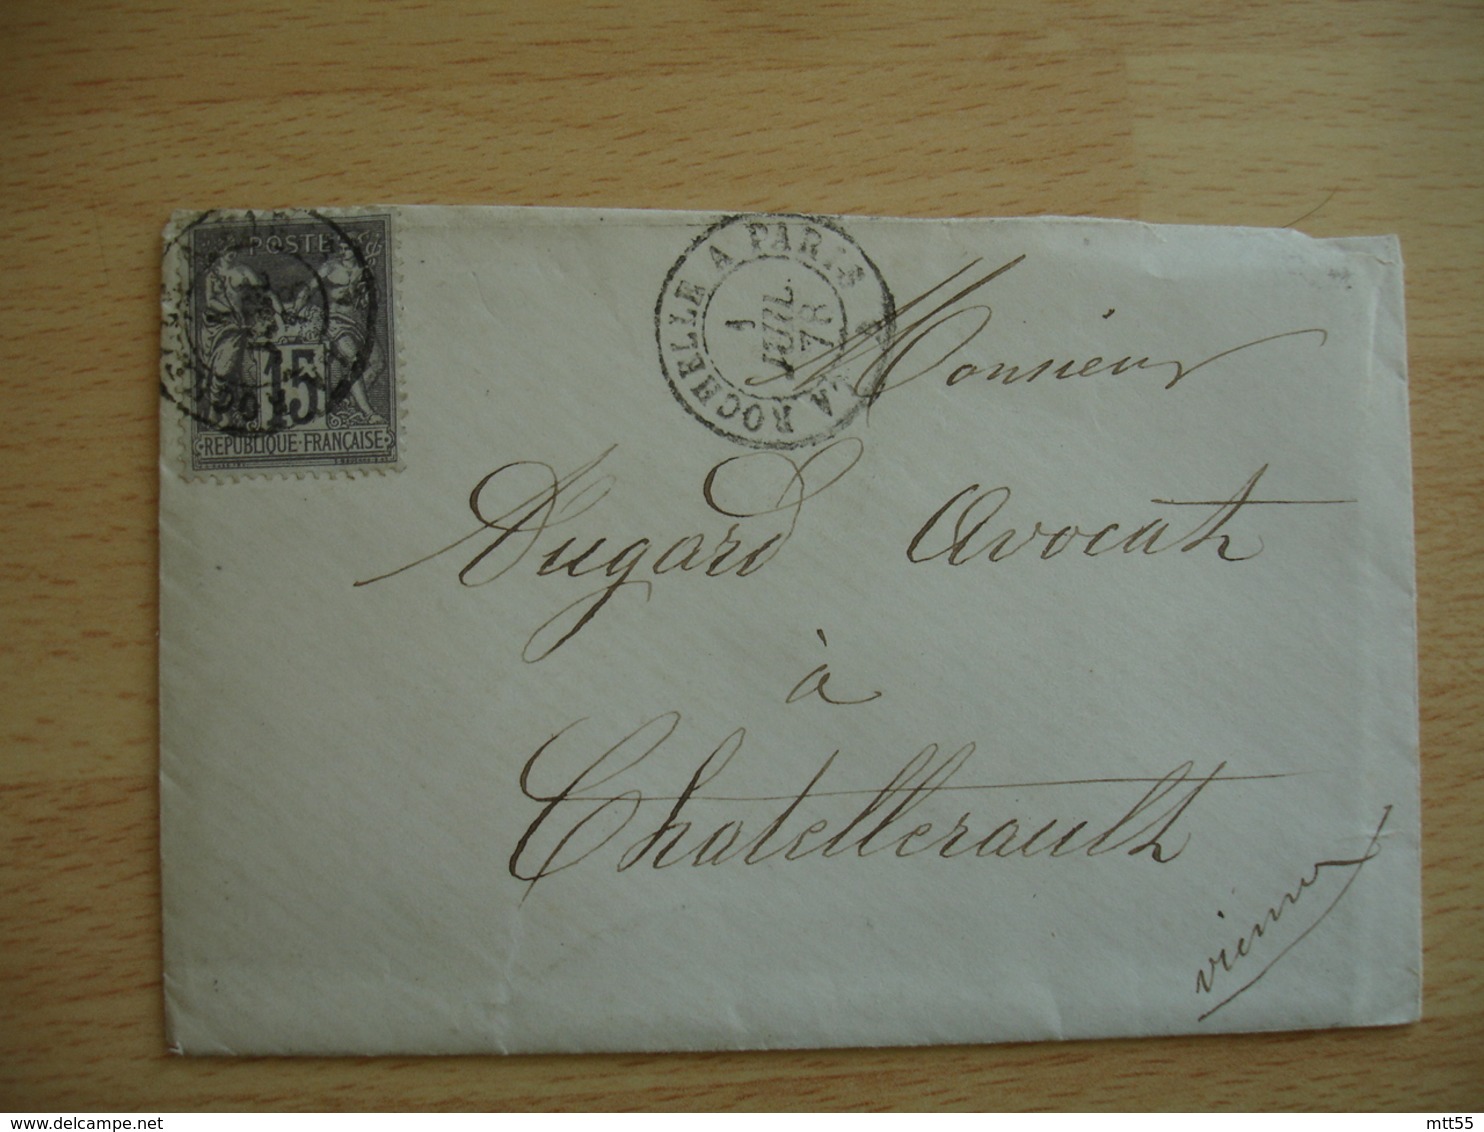 POSTE
15
REPUBLIQUE FRANÇAISE
LA ROCHELLE A PARIS
1
JUIL
78
Monsieur
Dugard Avocat
à
Chatellerault
Vienne
delcampe.net
mtt55